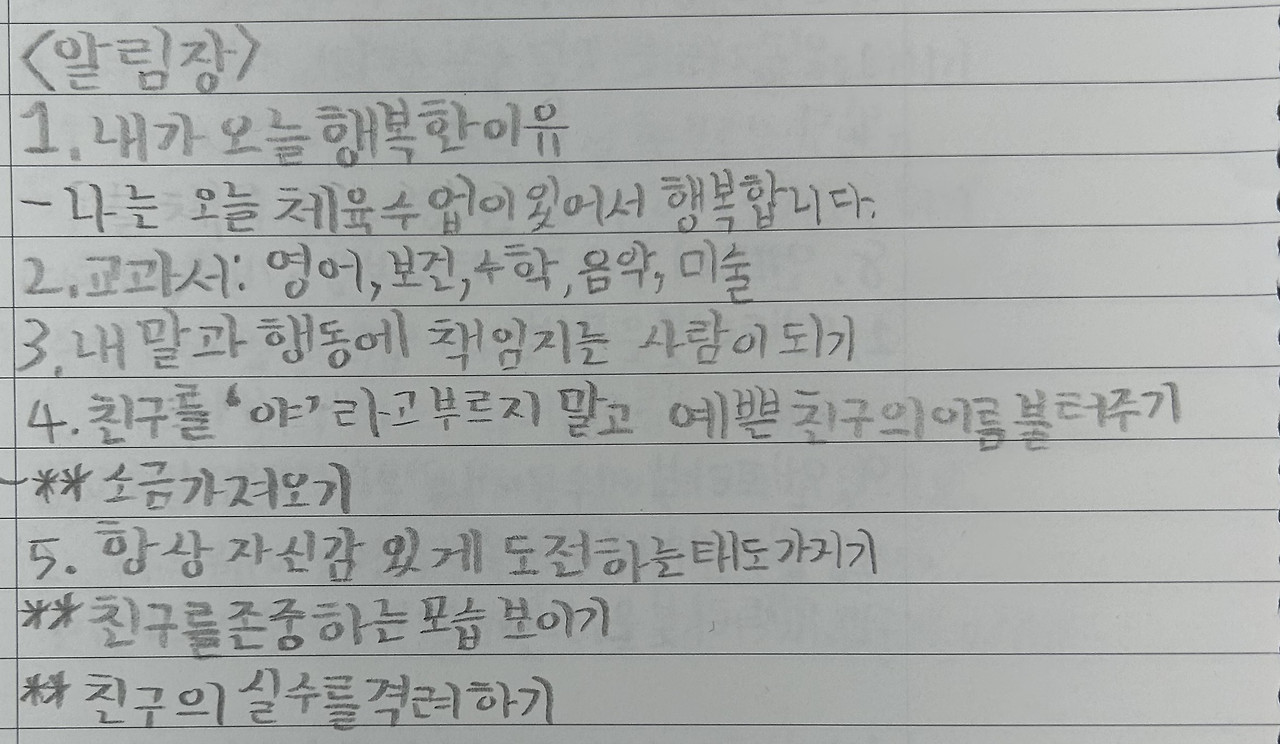 <알림장>
1. 내가 오늘 행복한 이유
- 나는 오늘 체육수업이 있어서 행복합니다.
2. 교과서: 영어, 보건, 수학, 음악, 미술
3. 내 말과 행동에 책임지는 사람이 되기
4. 친구를 '야' 라고 부르지 말고 예쁜 친구의 이름 불러주기
- ** 소금 가져오기
5. 항상 자신감 있게 도전하는 태도 가지기
** 친구를 존중하는 모습 보이기
** 친구의 실수를 격려하기